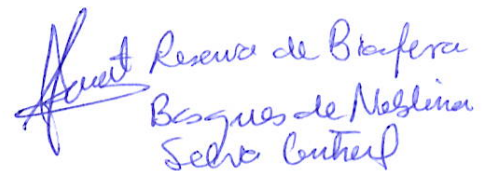 Reserva de Biosfera
Bosques de Neblina
Selva Central